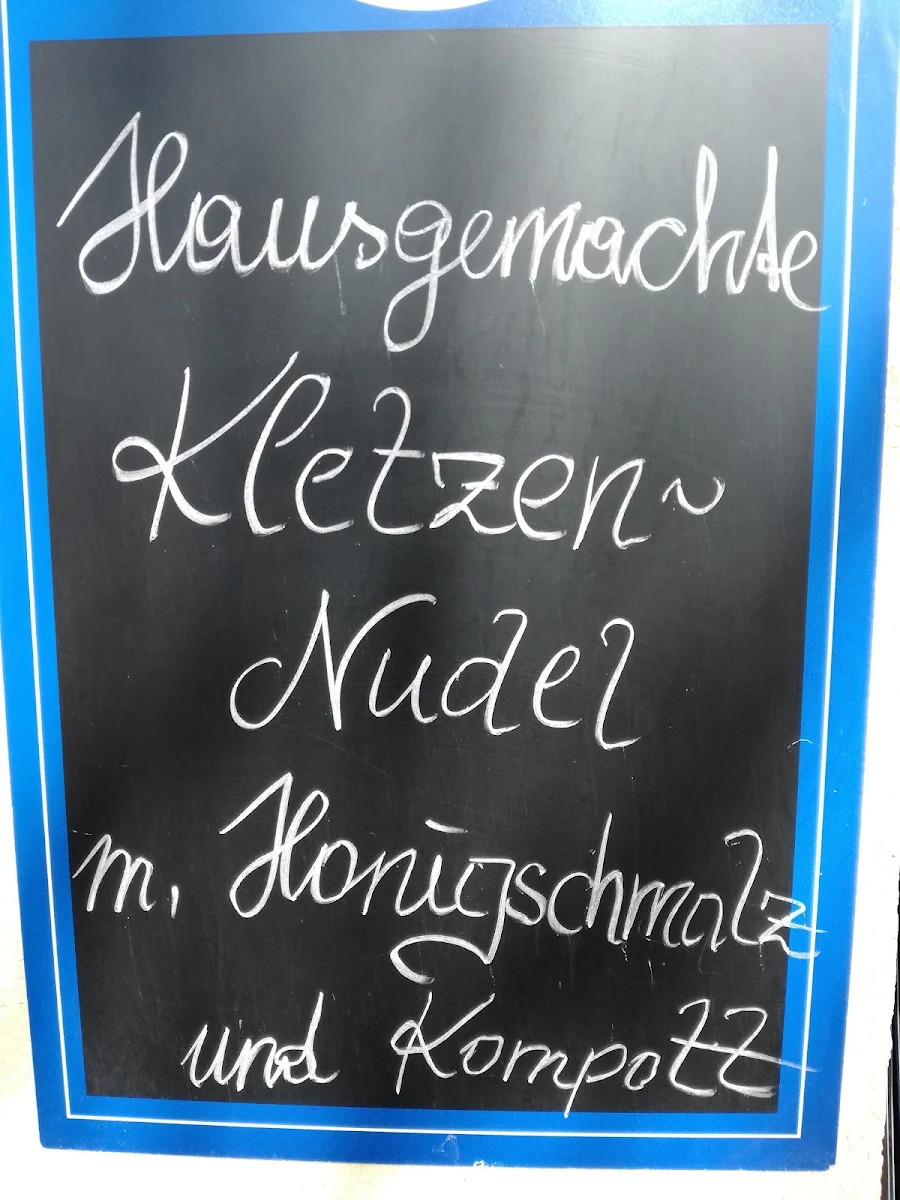 Hausgemachte
Kletzen~
Nudel
m. Honigschmalz
und Kompott